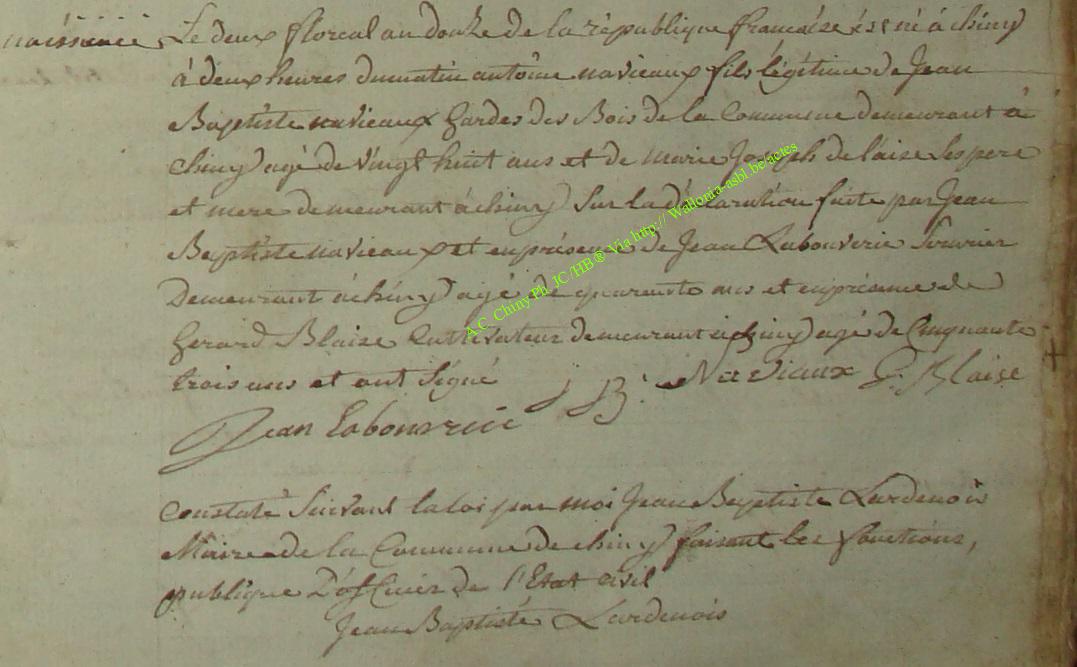 naissance Le deux floreal an douze de la république francaise est né à chiny
à deux heures du matin antoine navieaux fils légitime de Jean
Baptiste navieaux gardes des Bois de la Commune demeurant à
chiny agé de vingt huit ans et de marie Joseph de laise Les pere
et mere demeurant à chiny Sur la déclaration faite par Jean
Baptiste navieaux et en présence de Jean Labouverie
Demeurant à chiny agé de quarente ans et en présence de
Gerard Blaise Cultivateur demeurant à chiny agé de Cinquante
trois ans et ont Signé
J B. Naviaux G. Blaise
Jean Labouverie
Constaté Suivant la loi par moi Jean Baptiste Lardenois
Maire de la Commune de chiny faisant les fonctions,
publique D'officier de l'Etat civil
Jean Baptiste Lardenois
A.C. Chiny Ph. JC/HB ® Via http:// Wallonia-asbl.be/actes